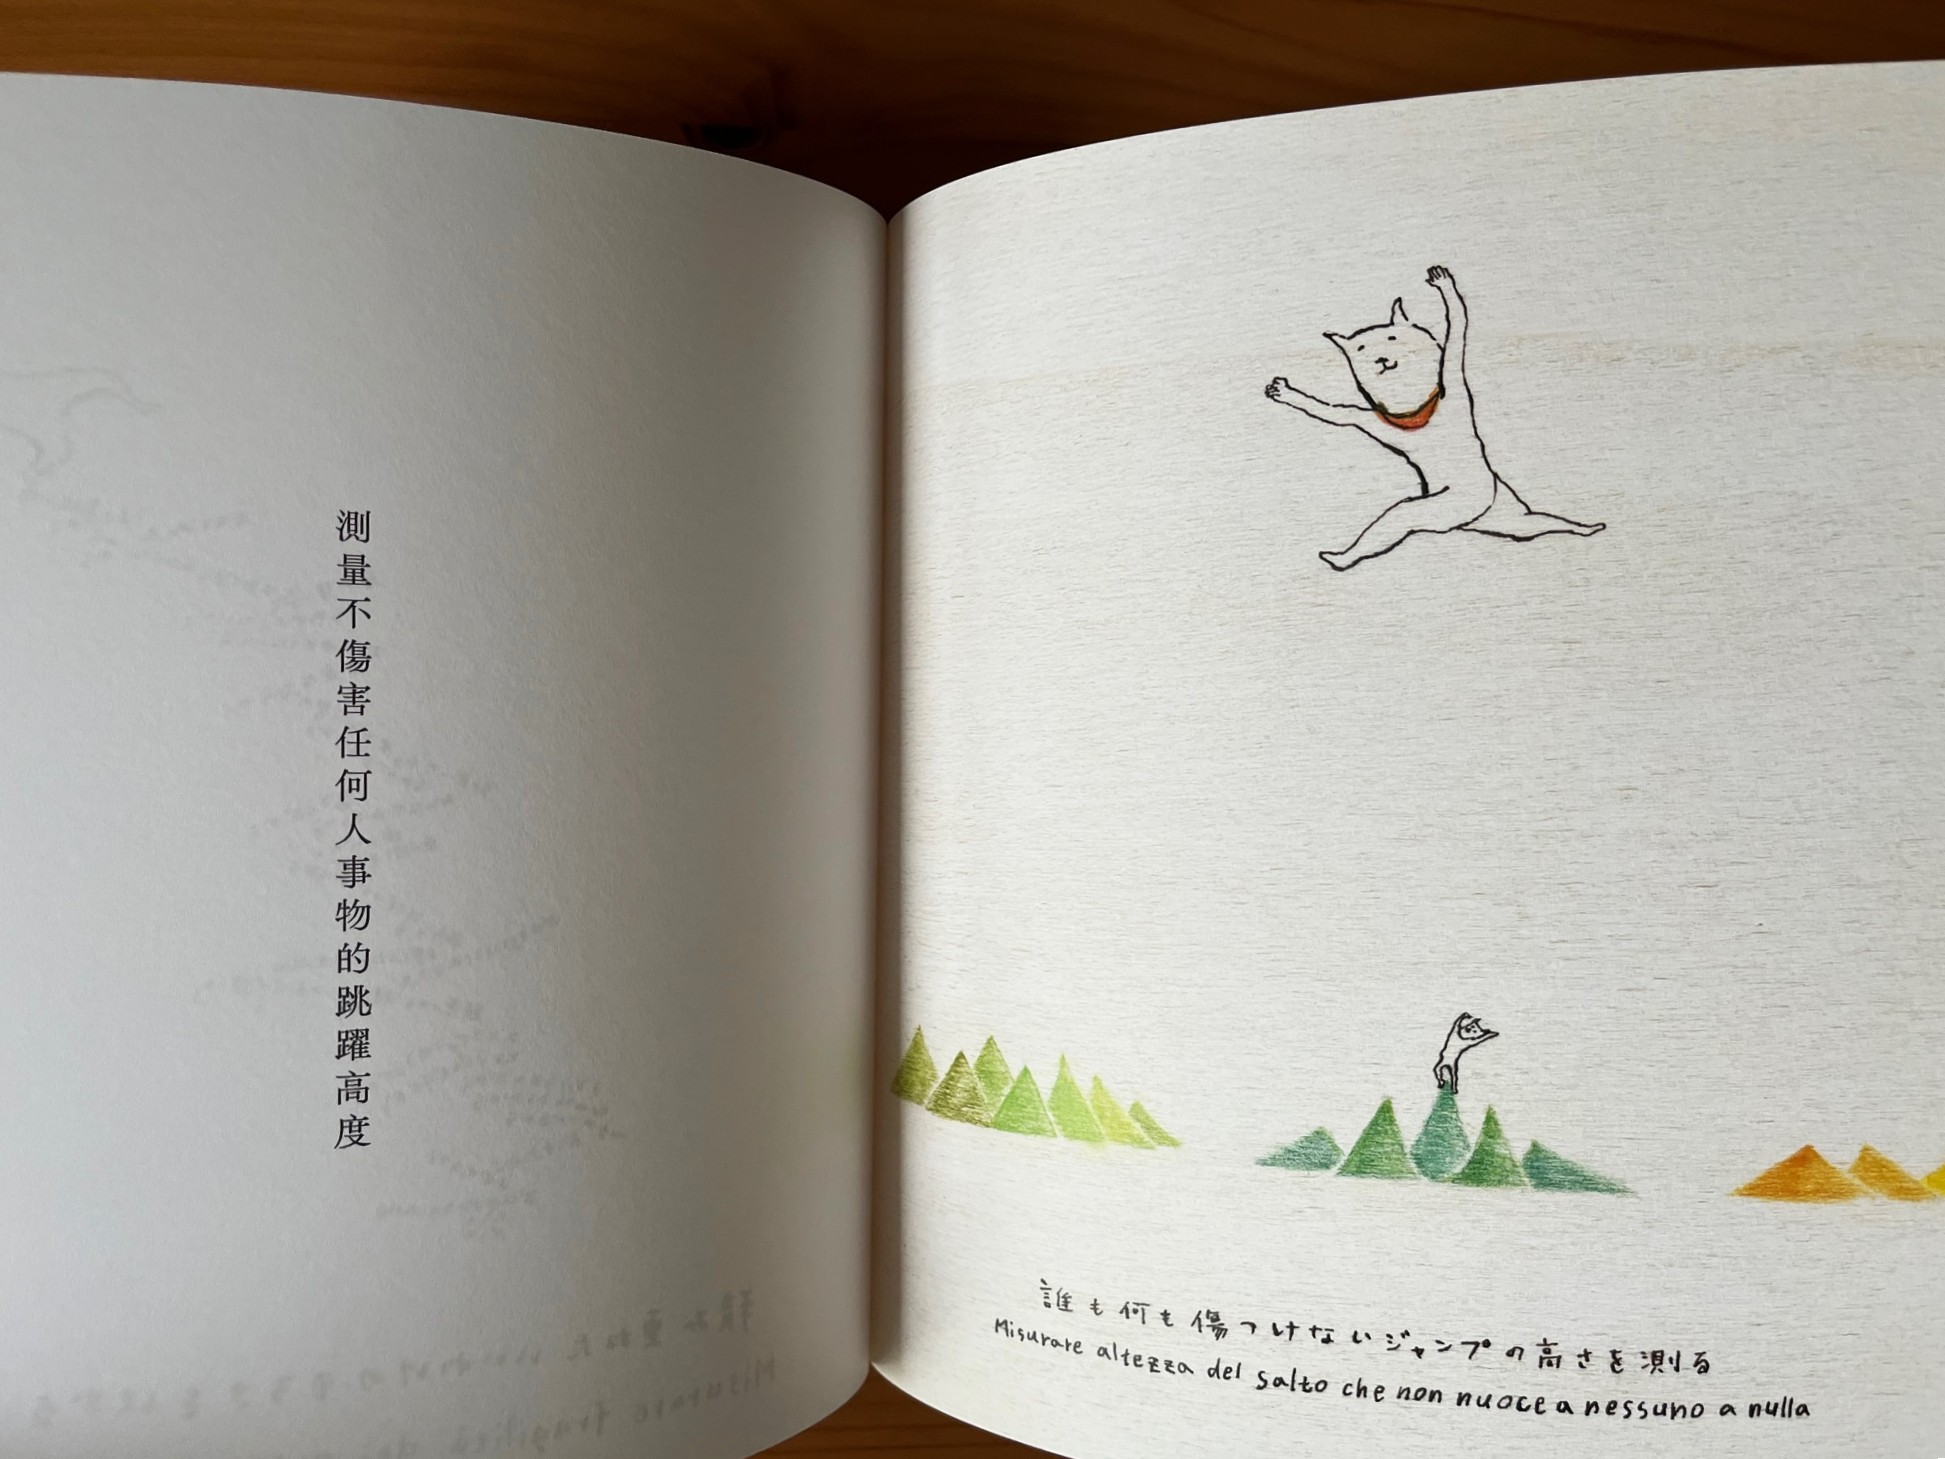 測量不傷害任何人事物的跳躍高度
誰も何も傷つけないジャンプの高さを測る
Misurare altezza del salto che non nuoce a nessuno a nulla